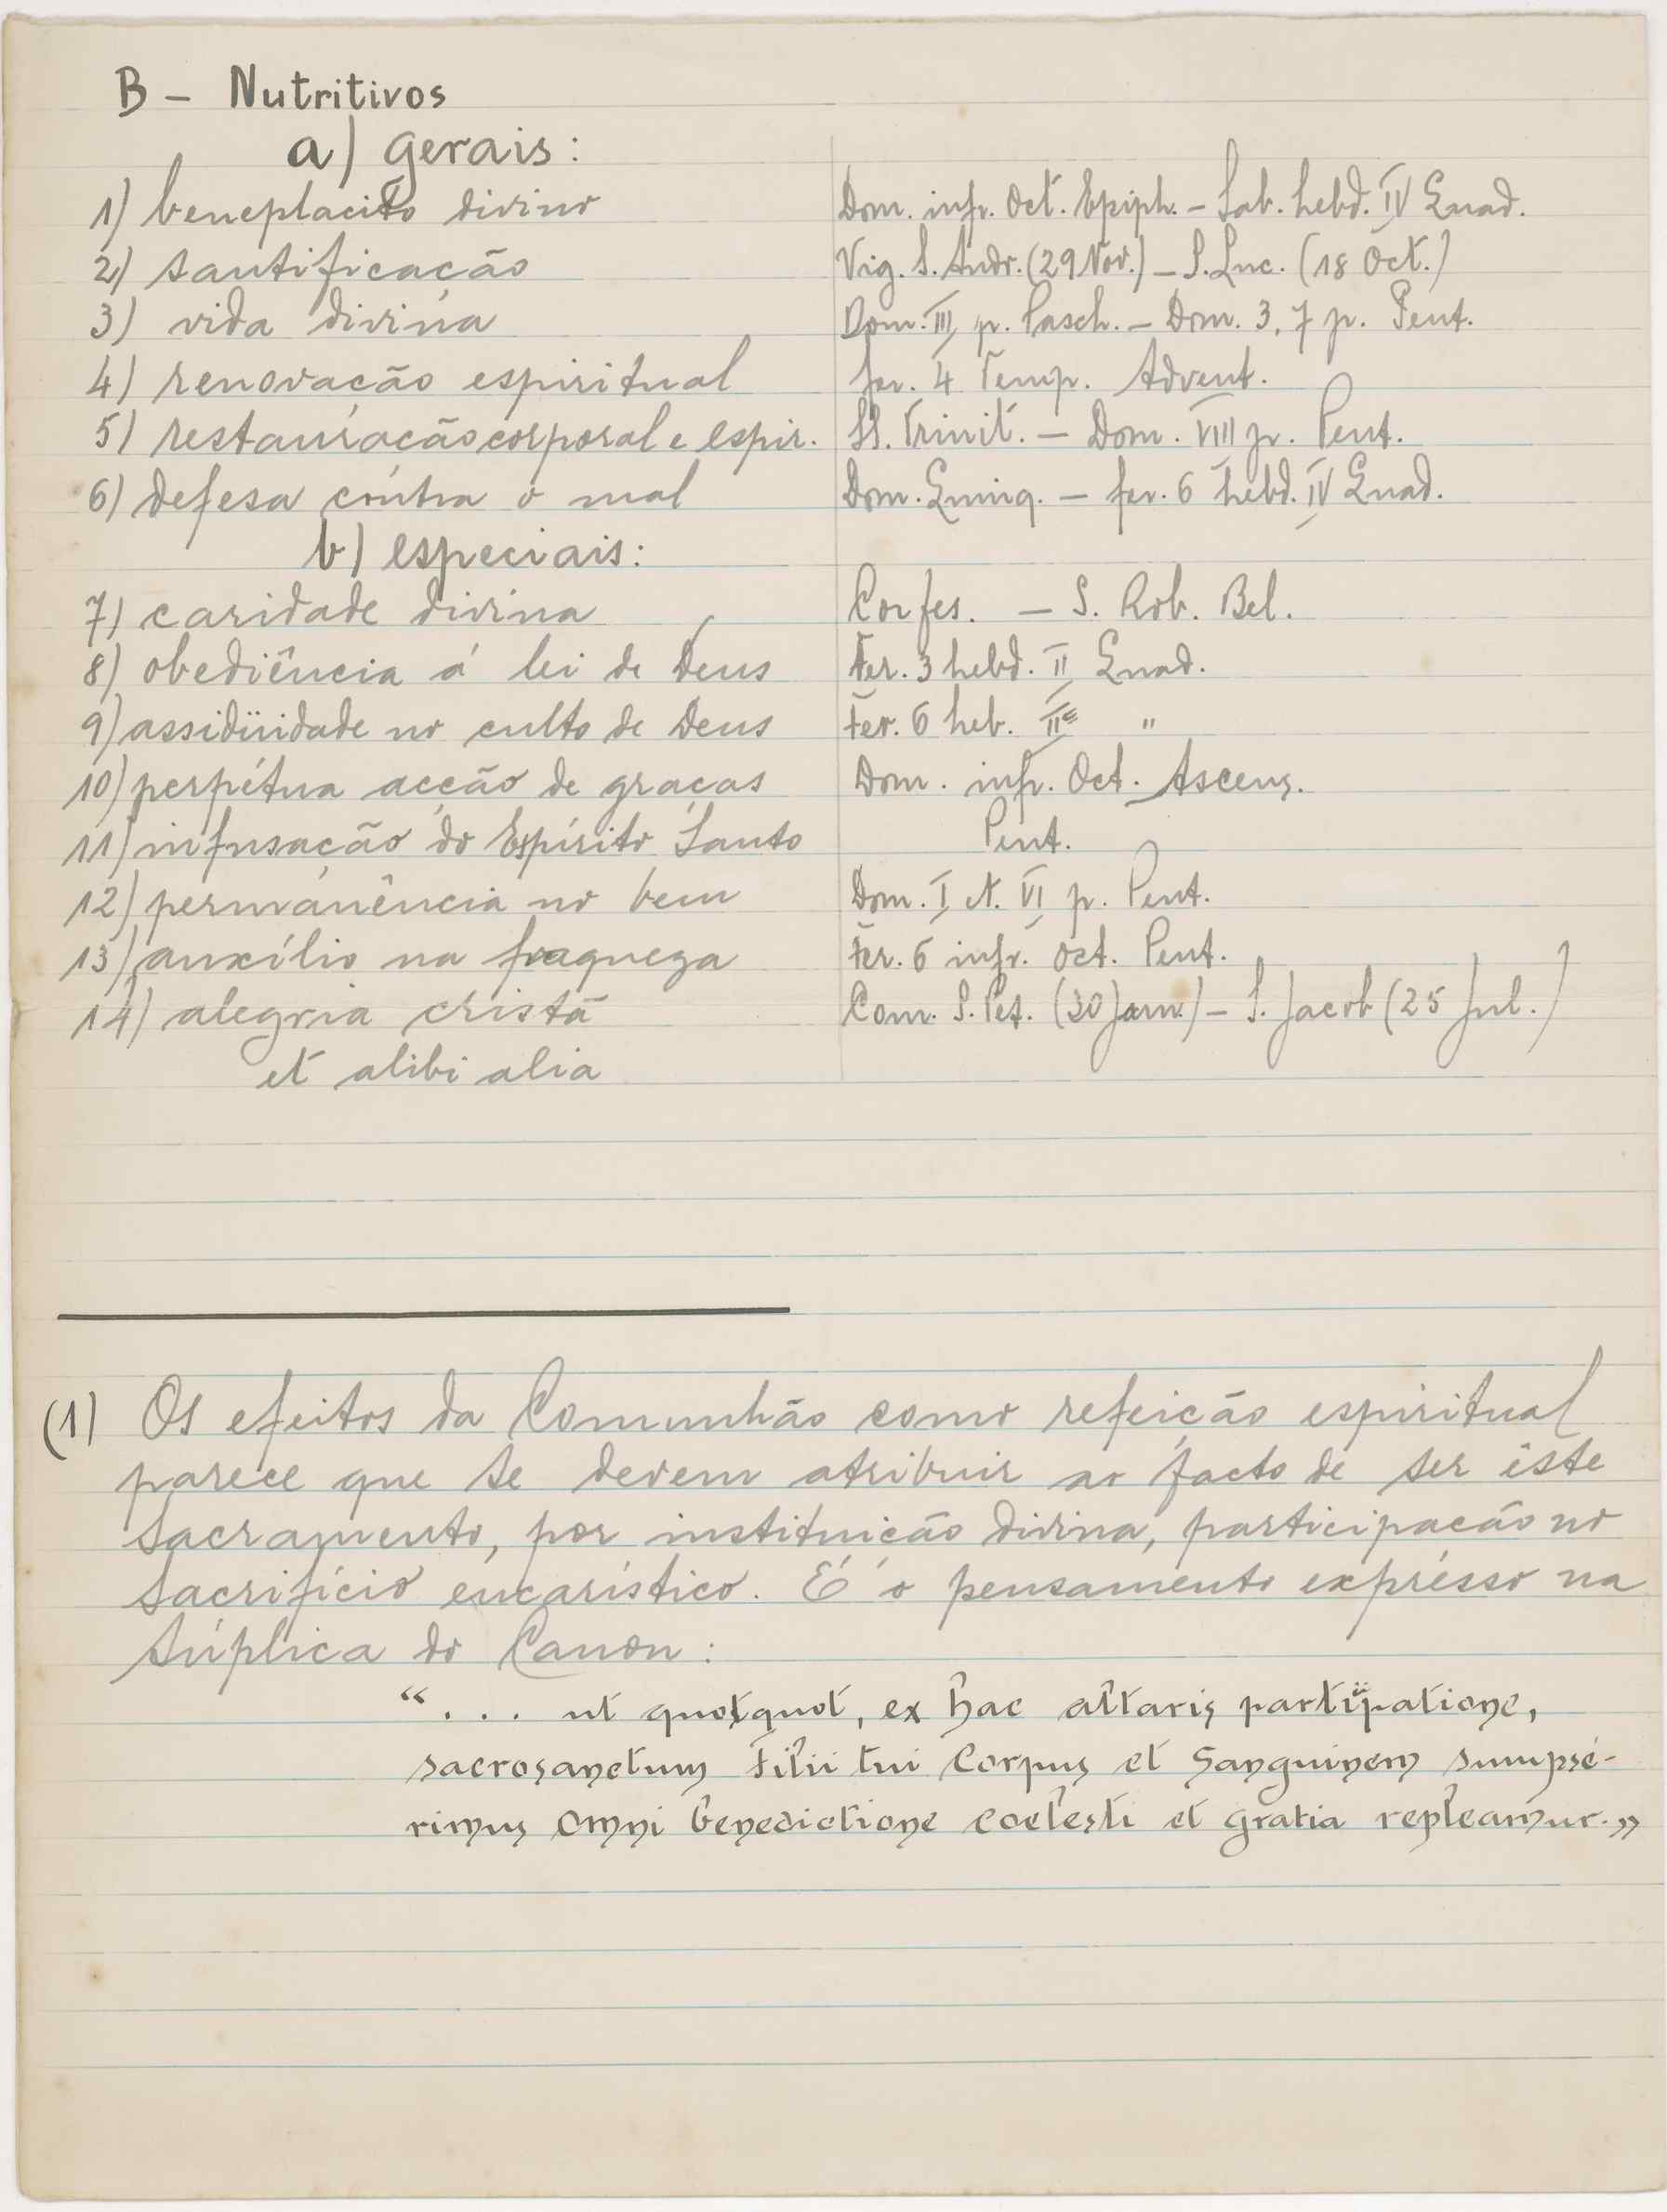 B – Nutritivos
a) gerais:
1) beneplacito divino Dom. infr. Oct. Epiph. – Sab. hebd. IV Quad.
2) santificação Vig. S. Andr. (29 Nov.) – S. Luc. (18 Oct.)
3) vida divina Dom. III p. Pasch. – Dom. 3, 7 p. Pent.
4) renovação espiritual fer. 4 Temp. Advent.
5) restauração corporal e espir. SS. Trinit. – Dom. VIII p. Pent.
6) defesa contra o mal Dom. Quinq. – fer. 6 hebd. IV Quad.
b) especiais:
7) caridade divina Confes. – S. Rob. Bel.
8) obediência á lei de Deus Fer. 3 hebd. II Quad.
9) assidüidade no culto de Deus Fer. 6 heb. II "
10) perpétua acção de graças Dom. infr. Oct. Ascens.
11) infusação do Espírito Santo Pent.
12) permanência no bem Dom. I, VI p. Pent.
13) auxílio na fraqueza Fer. 6 infr. Oct. Pent.
14) alegria cristã Com. S. Pet. (30 Jun.) – S. Jacob (25 Jul.)
et alibi alia
(1) Os efeitos da Comunhão como refeição espiritual
parece que se devem atribuir ao facto de ser êste
sacramento, por instituição divina, participação no
sacrifício eucarístico. É o pensamento expresso na
súplica do Canon:
“... ut quotquot, ex hac altaris partiipatione,
sacrosanctum Filii tui Corpus et Sanguinem sumpsé-
rimus omni benedictione coelesti et gratia repleamur.”